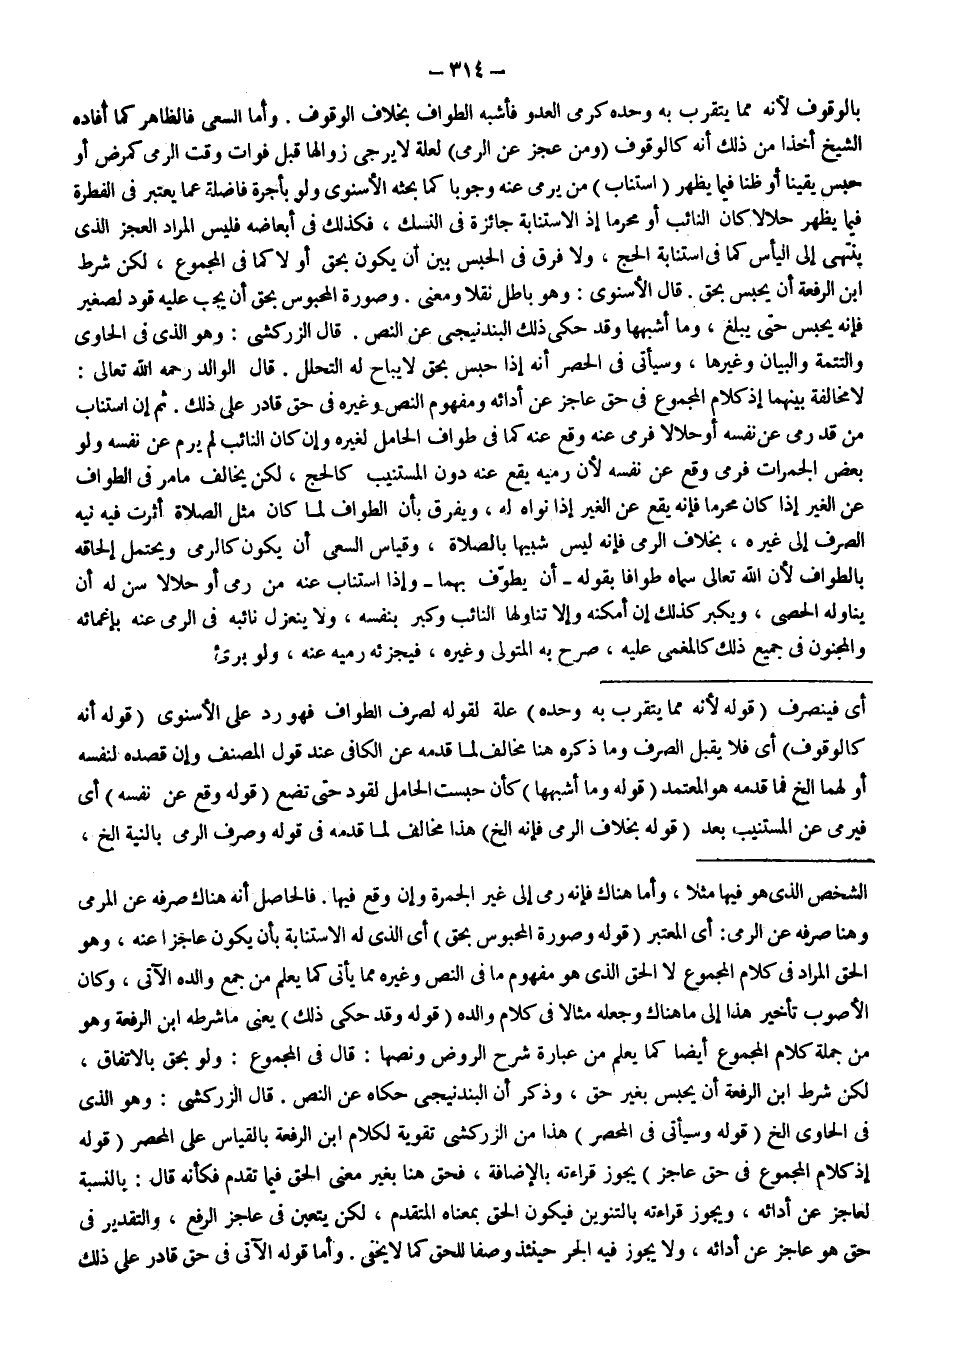 – ٣١٤ –
بالوقوف لأنه مما يتقرب به وحده كرمى العدو فأشبه الطواف بخلاف الوقوف . وأما السعى فالظاهر كما أفاده
الشيخ أخذا من ذلك أنه كالوقوف (ومن عجز عن الرمى) لعلة لايرجى زوالها قبل فوات وقت الرمى كمرض أو
حبس يقينا أو ظنا فيما يظهر (استناب) من يرمى عنه وجوبا كما بحثه الأسنوى ولو بأجرة فاضلة عما يعتبر فى الفطرة
فيما يظهر حلالا كان النائب أو محرما إذ الاستنابة جائزة فى النسك ، فكذلك فى أبعاضه فليس المراد العجز الذى
ينتهى إلى اليأس كما فى استنابة الحج ، ولا فرق فى الحبس بين أن يكون بحق أو لا كما فى المجموع ، لكن شرط
ابن الرفعة أن يحبس بحق . قال الأسنوى : وهو باطل نقلا ومعنى . وصورة المحبوس بحق أن يجب عليه قود لصغير
فإنه يحبس حتى يبلغ ، وما أشبهها وقد حكى ذلك البندنيجى عن النص . قال الزركشى : وهو الذى فى الحاوى
والتتمة والبيان وغيرها ، وسيأتى فى الحصر أنه إذا حبس بحق لايباح له التحلل . قال الوالد رحمه الله تعالى :
لامخالفة بينهما إذ كلام المجموع فى حق عاجز عن أدائه ومفهوم النص وغيره فى حق قادر على ذلك . ثم إن استناب
من قد رمى عن نفسه أو حلالا فرمى عنه وقع عنه كما فى طواف الحامل لغيره وإن كان النائب لم يرم عن نفسه ولو
بعض الجمرات فرمى وقع عن نفسه لأن رميه يقع عنه دون المستنيب كالحج ، لكن يخالف مامر فى الطواف
عن الغير إذا كان محرما فإنه يقع عن الغير إذا نواه له ، ويفرق بأن الطواف لما كان مثل الصلاة أثرت فيه نية
الصرف إلى غيره ، بخلاف الرمى فإنه ليس شبيها بالصلاة ، وقياس السعى أن يكون كالرمى ويحتمل إلحاقه
بالطواف لأن الله تعالى سماه طوافا بقوله – أن يطوّف بهما – وإذا استناب عنه من رمى أو حلالا سن له أن
يناوله الحصى ، ويكبر كذلك إن أمكنه وإلا تناولها النائب وكبر بنفسه ، ولا ينعزل نائبه فى الرمى عنه بإغمائه
والمجنون فى جميع ذلك كالمغمى عليه ، صرح به المتولى وغيره ، فيجزئه رميه عنه ، ولو برئ
أى فينصرف (قوله لأنه مما يتقرب به وحده) علة لقوله لصرف الطواف فهو رد على الأسنوى (قوله أنه
كالوقوف) أى فلا يقبل الصرف وما ذكره هنا مخالف لما قدمه عن الكافى عند قول المصنف وإن قصده لنفسه
أو لهما الخ فما قدمه هو المعتمد (قوله وما أشبهها) كأن حبست الحامل لقود حتى تضع (قوله وقع عن نفسه) أى
فيرمى عن المستنيب بعد (قوله بخلاف الرمى فإنه الخ) هذا مخالف لما قدمه فى قوله وصرف الرمى بالنية الخ ،
الشخص الذى هو فيها مثلا ، وأما هناك فإنه رمى إلى غير الجمرة وإن وقع فيها . فالحاصل أنه هناك صرفه عن المرمى
وهنا صرفه عن الرمى: أى المعتبر (قوله وصورة المحبوس بحق) أى الذى له الاستنابة بأن يكون عاجزا عنه ، وهو
الحق المراد فى كلام المجموع لا الحق الذى هو مفهوم ما فى النص وغيره مما يأتى كما يعلم من جمع والده الآتى ، وكان
الأصوب تأخير هذا إلى ماهناك وجعله مثالا فى كلام والده (قوله وقد حكى ذلك) يعنى ماشرطه ابن الرفعة وهو
من جملة كلام المجموع أيضا كما يعلم من عبارة شرح الروض ونصها : قال فى المجموع : ولو بحق بالاتفاق ،
لكن شرط ابن الرفعة أن يحبس بغير حق ، وذكر أن البندنيجى حكاه عن النص . قال الزركشى : وهو الذى
فى الحاوى الخ (قوله وسيأتى فى المحصر) هذا من الزركشى تقوية لكلام ابن الرفعة بالقياس على المحصر (قوله
إذ كلام المجموع فى حق عاجز) يجوز قراءته بالإضافة ، فحق هنا بغير معنى الحق فيما تقدم فكأنه قال : بالنسبة
لعاجز عن أدائه ، ويجوز قراءته بالتنوين فيكون الحق بمعناه المتقدم ، لكن يتعين فى عاجز الرفع ، والتقدير فى
حق هو عاجز عن أدائه ، ولا يجوز فيه الجر حينئذ وصفا للحق كما لايخفى . وأما قوله الآتى فى حق قادر على ذلك